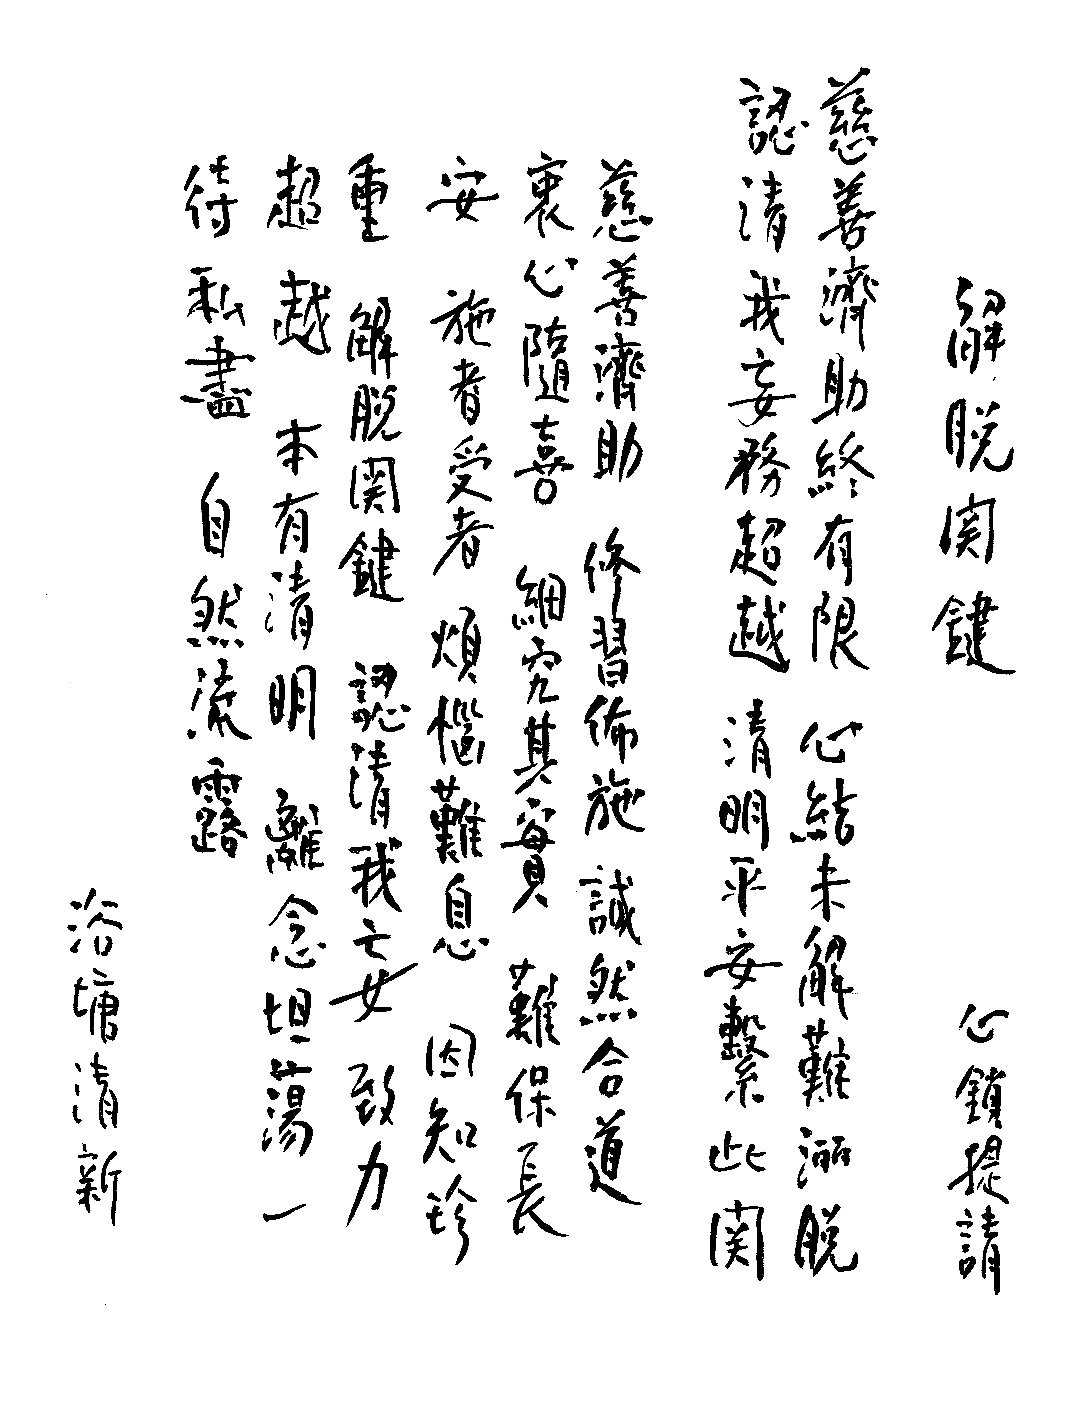 解脱関鍵 心鎖提請
慈善濟助終有限 心結未解難洒脱
認清我妄務超越 清明平安繫此関
慈善濟助 修習佈施 誠然合道
衷心隨喜 細究其實 難保長
安 施者受者 煩惱難息 因知珍
重 解脱関鍵 認清我妄 致力
超越 本有清明 離念坦蕩 一
待私盡 自然流露
浴塘清新